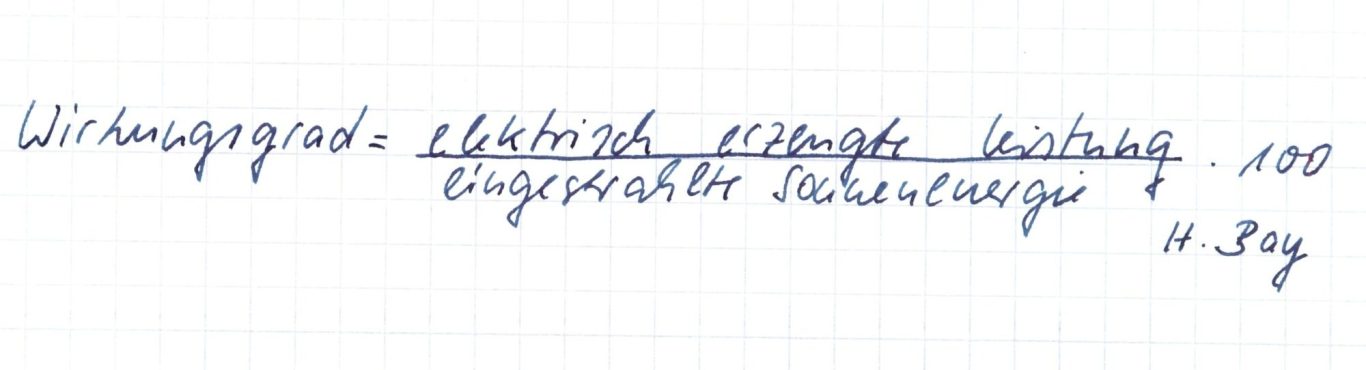 Wirkungsgrad = elektrisch erzeugte Leistung · 100
eingestrahlte Sonnenenergie
H. Bay